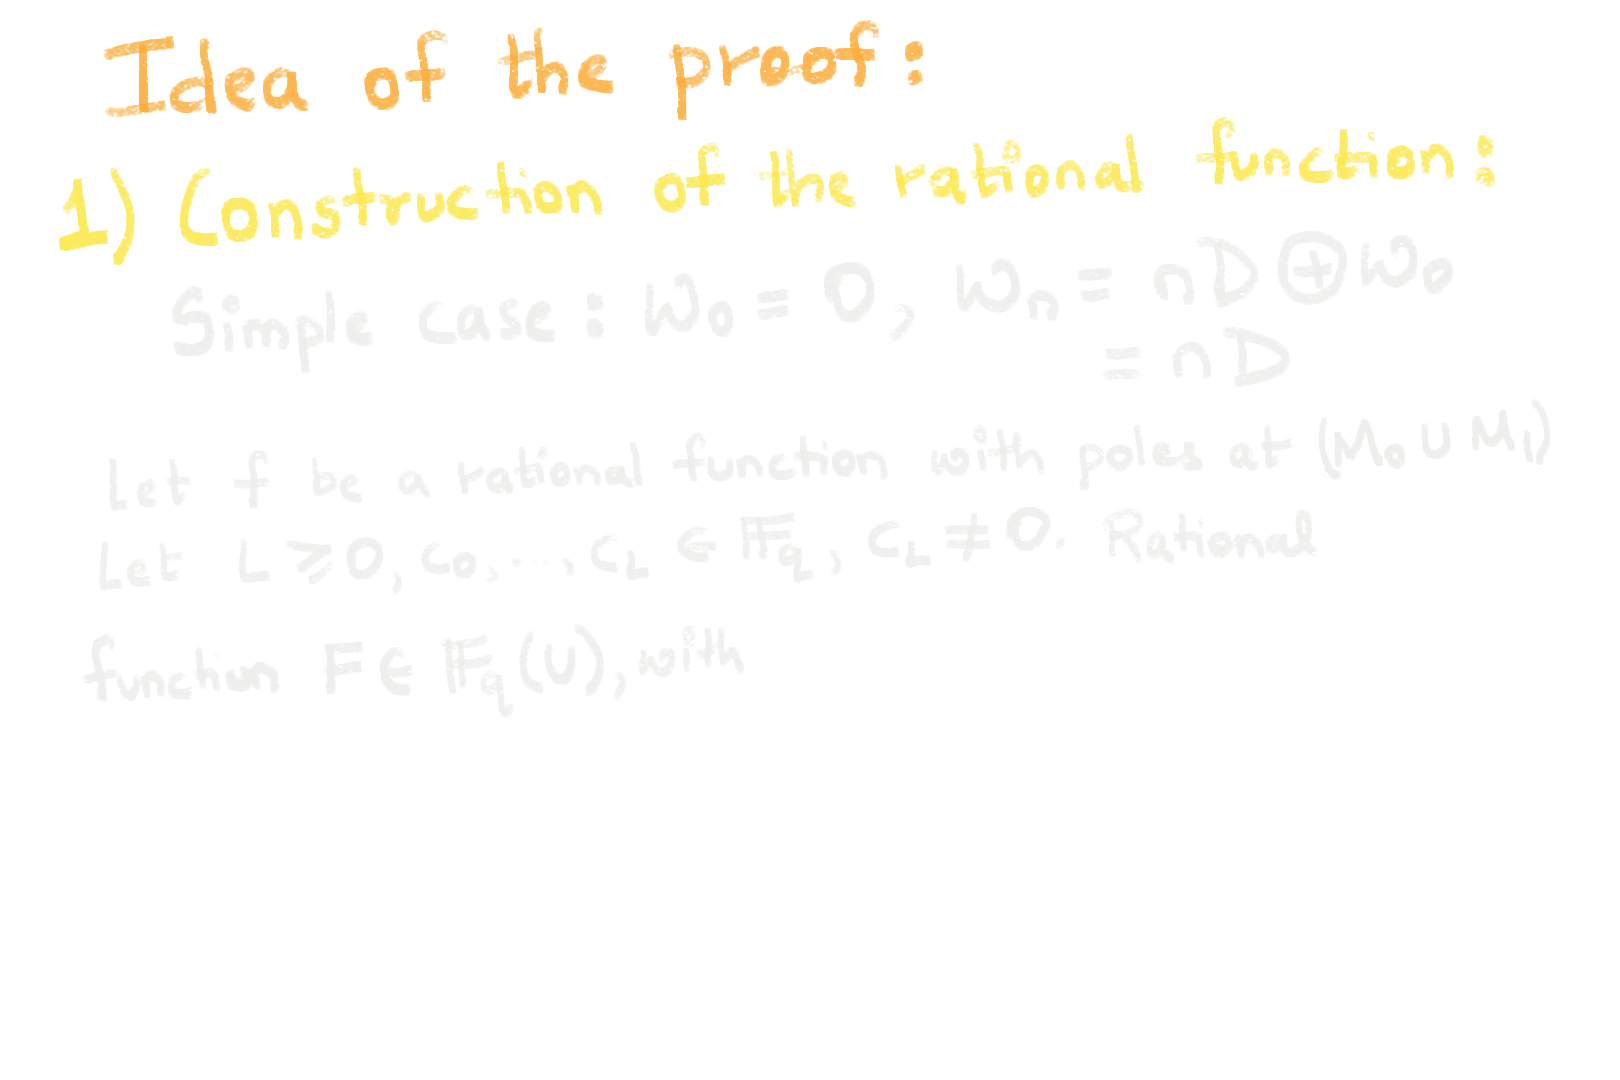 Idea of the proof:
1) Construction of the rational function:
Simple case: W₀ = O, Wₙ = nD ⊕ W₀
= nD
Let f be a rational function with poles at (M₀ ∪ M₁)
Let L ⩾ 0, c₀, ..., c_L ∈ 𝔽_q, c_L ≠ 0. Rational
function F ∈ 𝔽_q(U), with